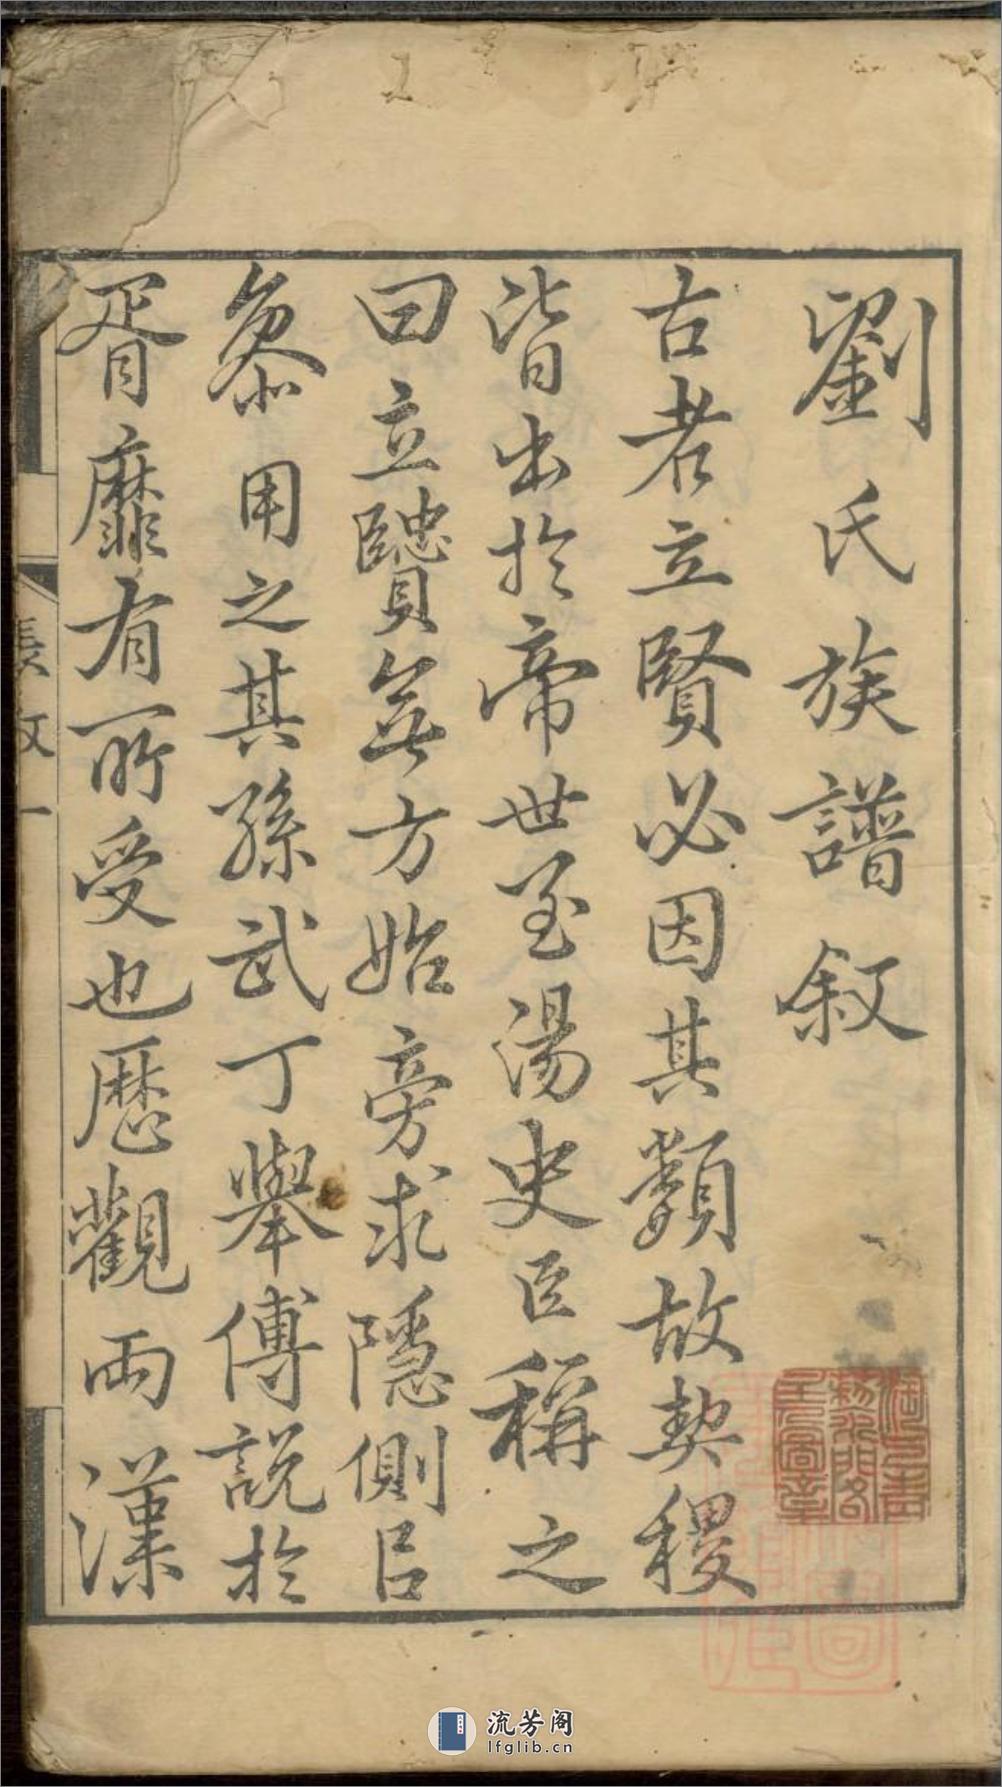 劉氏族譜叙
古者立賢必因其類故契稷
皆出於帝世至湯史臣稱之
曰立賢無方始旁求隱側㠯
參用之其孫武丁舉傅說於
胥靡有所受也歷觀兩漢
流芳阁
lfglib.cn